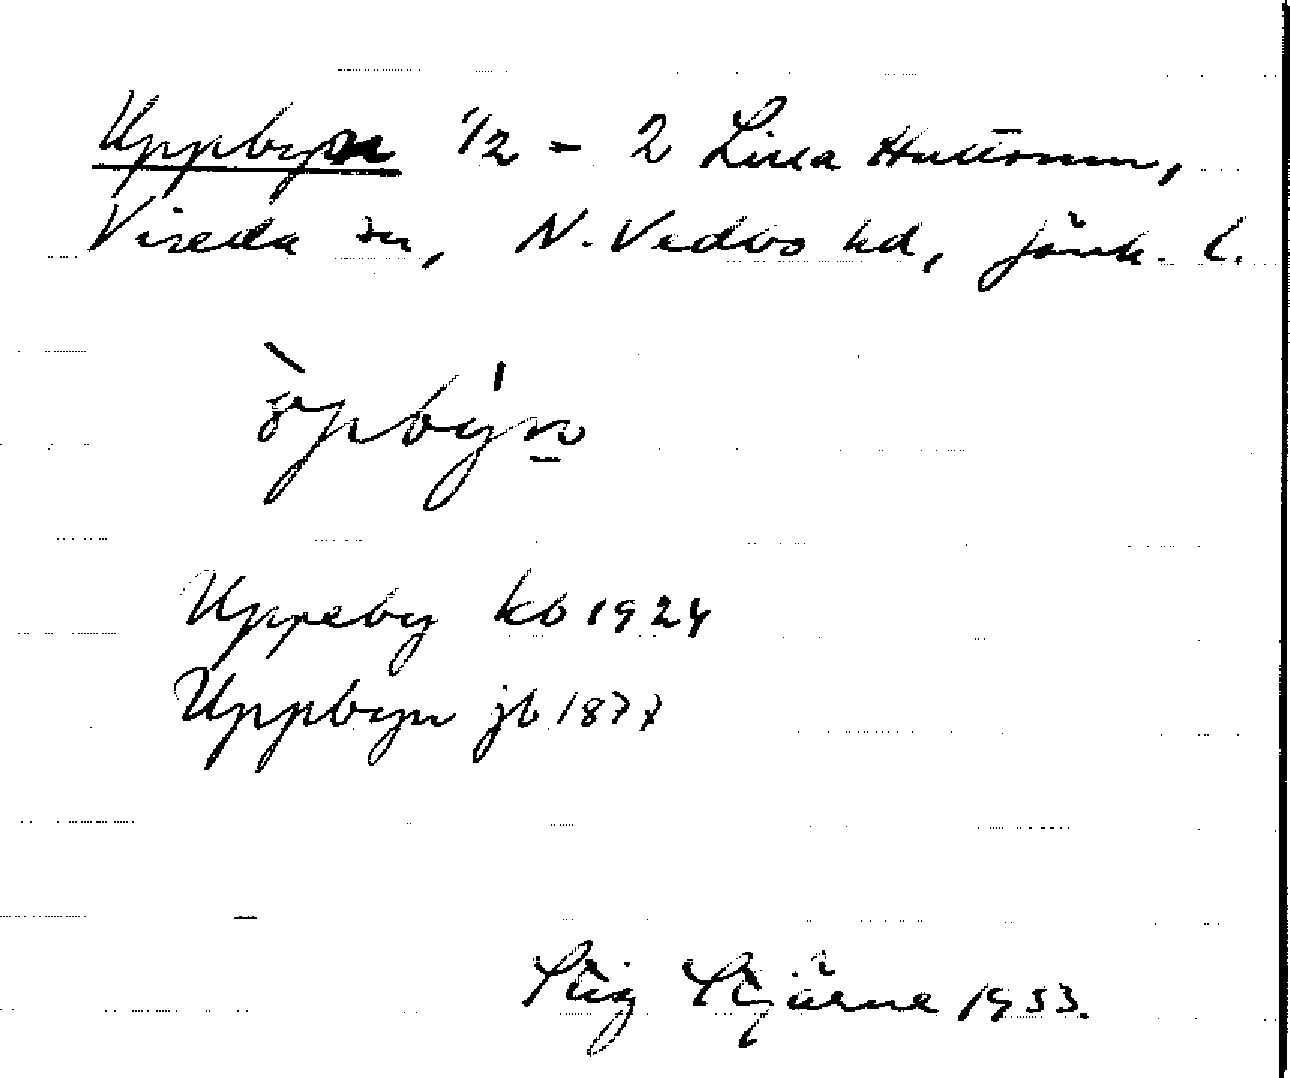 Uppbyn 1/2 - 2 Lilla Hultomm,
Vireda sn, N. Vedbo hd, Jönk. l.
Uppeby kb 1924
Uppbyn jb 1877
Stig Stjärne 1953.